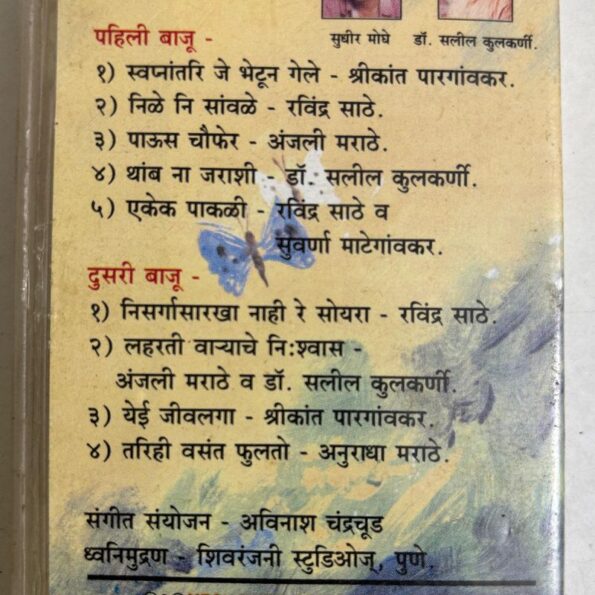 सुधीर मोघे डॉ. सलील कुलकर्णी.
पहिली बाजू -
१) स्वप्नांतरि जे भेटून गेले - श्रीकांत पारगांवकर.
२) निळे नि सांवळे - रविंद्र साठे.
३) पाऊस चौफेर - अंजली मराठे.
४) थांब ना जराशी - डॉ. सलील कुलकर्णी.
५) एकेक पाकळी - रविंद्र साठे व
सुवर्णा माटेगांवकर.
दुसरी बाजू -
१) निसर्गासारखा नाही रे सोयरा - रविंद्र साठे.
२) लहरती वाऱ्याचे नि:श्वास -
अंजली मराठे व डॉ. सलील कुलकर्णी.
३) येई जीवलगा - श्रीकांत पारगांवकर.
४) तरिही वसंत फुलतो - अनुराधा मराठे.
संगीत संयोजन - अविनाश चंद्रचूड
ध्वनिमुद्रण - शिवरंजनी स्टुडिओज्, पुणे.